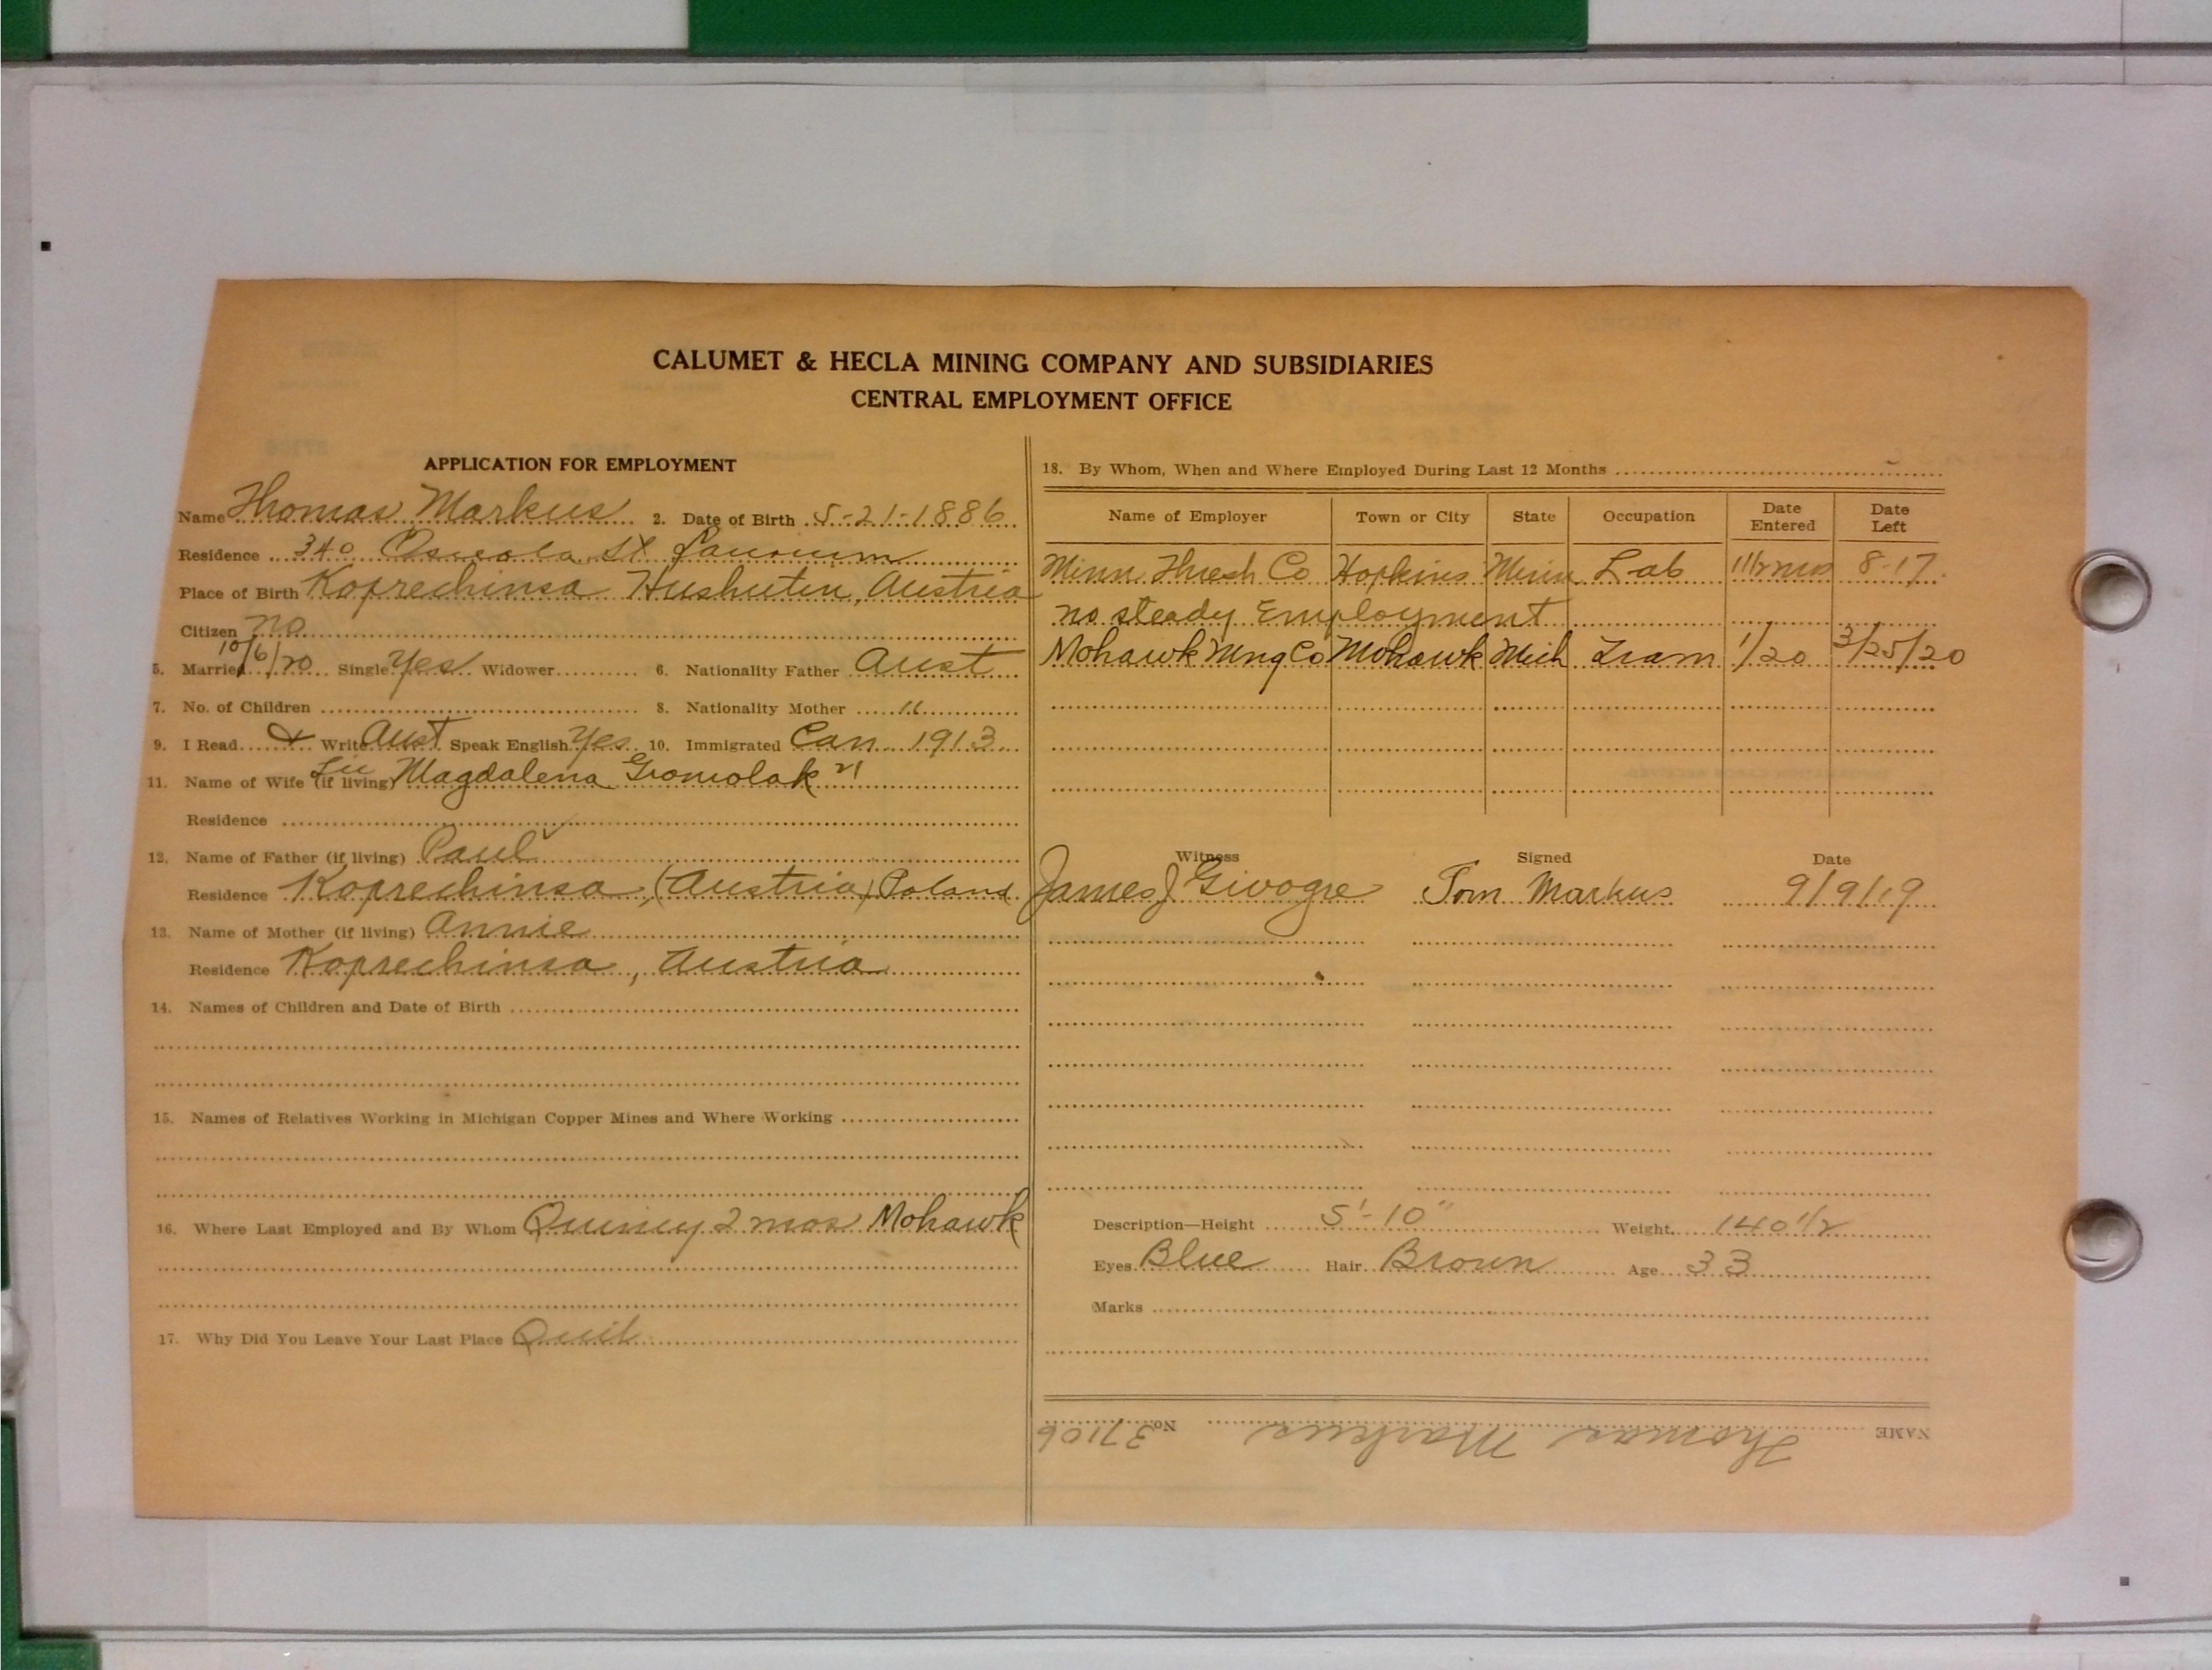 CALUMET & HECLA MINING COMPANY AND SUBSIDIARIES
CENTRAL EMPLOYMENT OFFICE
APPLICATION FOR EMPLOYMENT
Name Thomas Markus 2. Date of Birth 5-21-1886
Residence 340 Osceola St Laurium
Place of Birth Koprechinsa Hushutin, Austria
Citizen no
5. Married 10/6/20 Single Yes Widower 6. Nationality Father Aust
7. No. of Children 8. Nationality Mother "
9. I Read & Write Aust Speak English Yes 10. Immigrated Can 1913
11. Name of Wife (if living) Lic Magdalena Gromolak 21
Residence
12. Name of Father (if living) Paul
Residence Koprechinsa, (Austria) Poland
13. Name of Mother (if living) Annie
Residence Koprechinsa, Austria
14. Names of Children and Date of Birth
15. Names of Relatives Working in Michigan Copper Mines and Where Working
16. Where Last Employed and By Whom Quincy 2 mos Mohawk
17. Why Did You Leave Your Last Place Quit
18. By Whom, When and Where Employed During Last 12 Months
Name of Employer Town or City State Occupation Date Entered Date Left
Minn Thresh Co Hopkins Minn Lab 1 1/2 mos 8-17
no steady Employment
Mohawk Mng Co Mohawk Mich Tram 1/20 3/25/20
Witness Signed Date
James J Givogre Tom Markus 9/9/19
Description—Height 5'-10" Weight 140 1/2
Eyes Blue Hair Brown Age 33
Marks
NAME Thomas Markus No. 37106